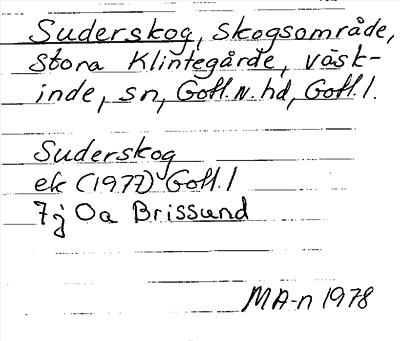 Suderskog, skogsområde,
Stora Klintegårde, väsk-
inde, sn, Gotl. N. hd, Gotl. l.
Suderskog
ek (1977) Gotl. l
7j Oa Brissund
MA-n 1978